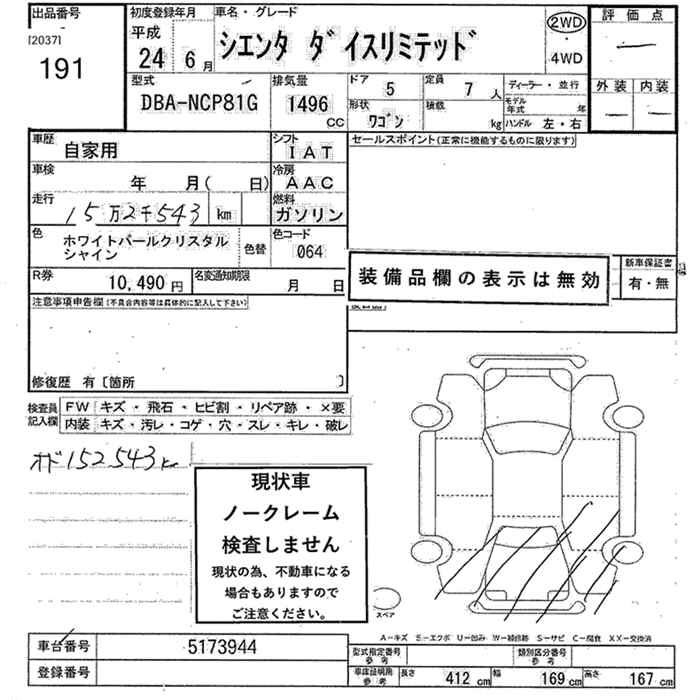 出品番号
[2037]
191
初度登録年月
平成
24年 6月
車名・グレード
シエンタ ダイスリミテッド
2WD
・
4WD
評価点
—
外装 内装
— —
型式
DBA-NCP81G
排気量
1496
CC
ドア 5
定員 7人
形状
ワゴン
積載
kg
ディーラー・並行
モデル年式 年
ハンドル 左・右
車歴
自家用
シフト
IAT
セールスポイント(正常に機能するものに限ります)
車検
年 月( 日)
冷房
AAC
走行
15万2千543 km
燃料
ガソリン
色
ホワイトパールクリスタル
シャイン
色替
色コード
064
装備品欄の表示は無効
新車保証書
有・無
R券
10,490 円
名変通知期限
月 日
注意事項申告欄(不具合内容等は具体的に記入して下さい)
修復歴 有〔箇所 〕
検査員
記入欄
FW キズ・飛石・ヒビ割・リペア跡・×要
内装 キズ・汚レ・コゲ・穴・スレ・キレ・破レ
オド152543km
現状車
ノークレーム
検査しません
現状の為、不動車になる
場合もありますので
ご注意ください。
スペア
A—キズ E—エクボ U—凹み W—補修跡 S—サビ C—腐食 XX—交換済
車台番号 5173944
登録番号
型式指定番号
参考
類別区分番号
参考
車庫証明用
参考
長さ 412 cm
幅 169 cm
高さ 167 cm